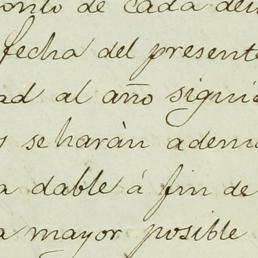 de cada
fecha del present
ad al año sigui
s seharán adem
a dable á fin de
a mayor posible